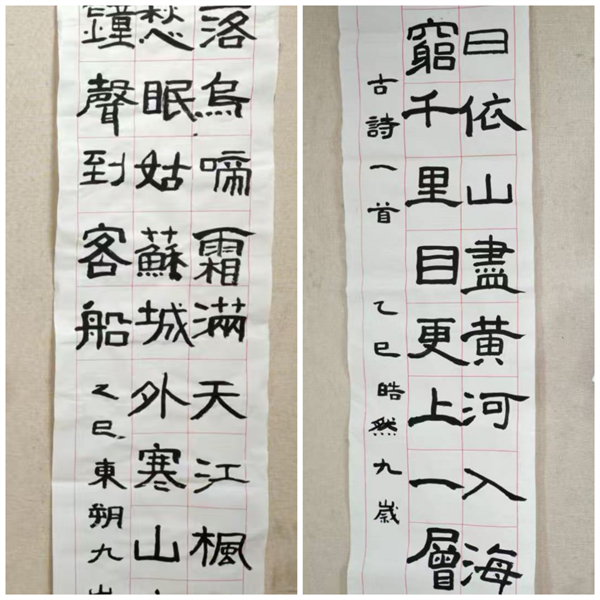 落烏啼霜滿天江楓
愁眠姑蘇城外寒山
鐘聲到客船 乙巳東朔九
日依山盡黄河入海
窮千里目更上一層
古詩一首 乙巳皓然九歲